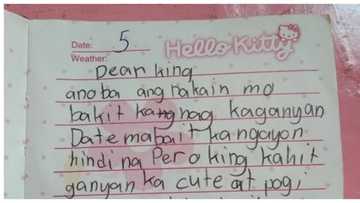 Date: 5
Hello Kitty
Weather:
Dear king
ano ba ang nakain mo
bakit kang nag kaganyan
Date mabait ka ngayon
hindi na Pero king kahit
ganyan ka cute at pogi